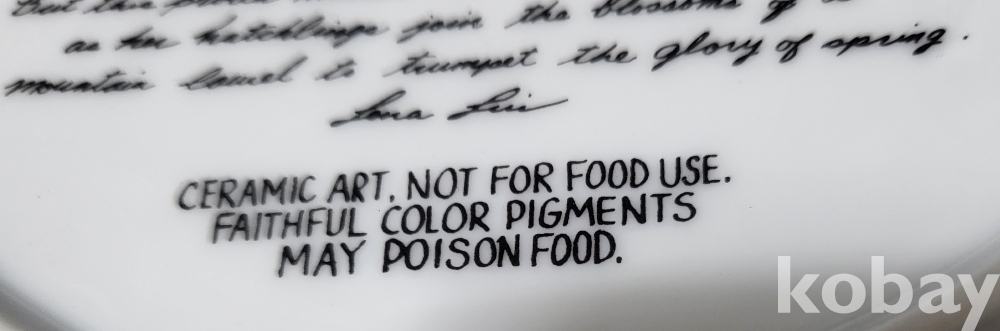 But this
as her hatchlings join the blossoms of
mountain laurel to trumpet the glory of spring.
Lena Liu
CERAMIC ART. NOT FOR FOOD USE.
FAITHFUL COLOR PIGMENTS
MAY POISON FOOD.
kobay